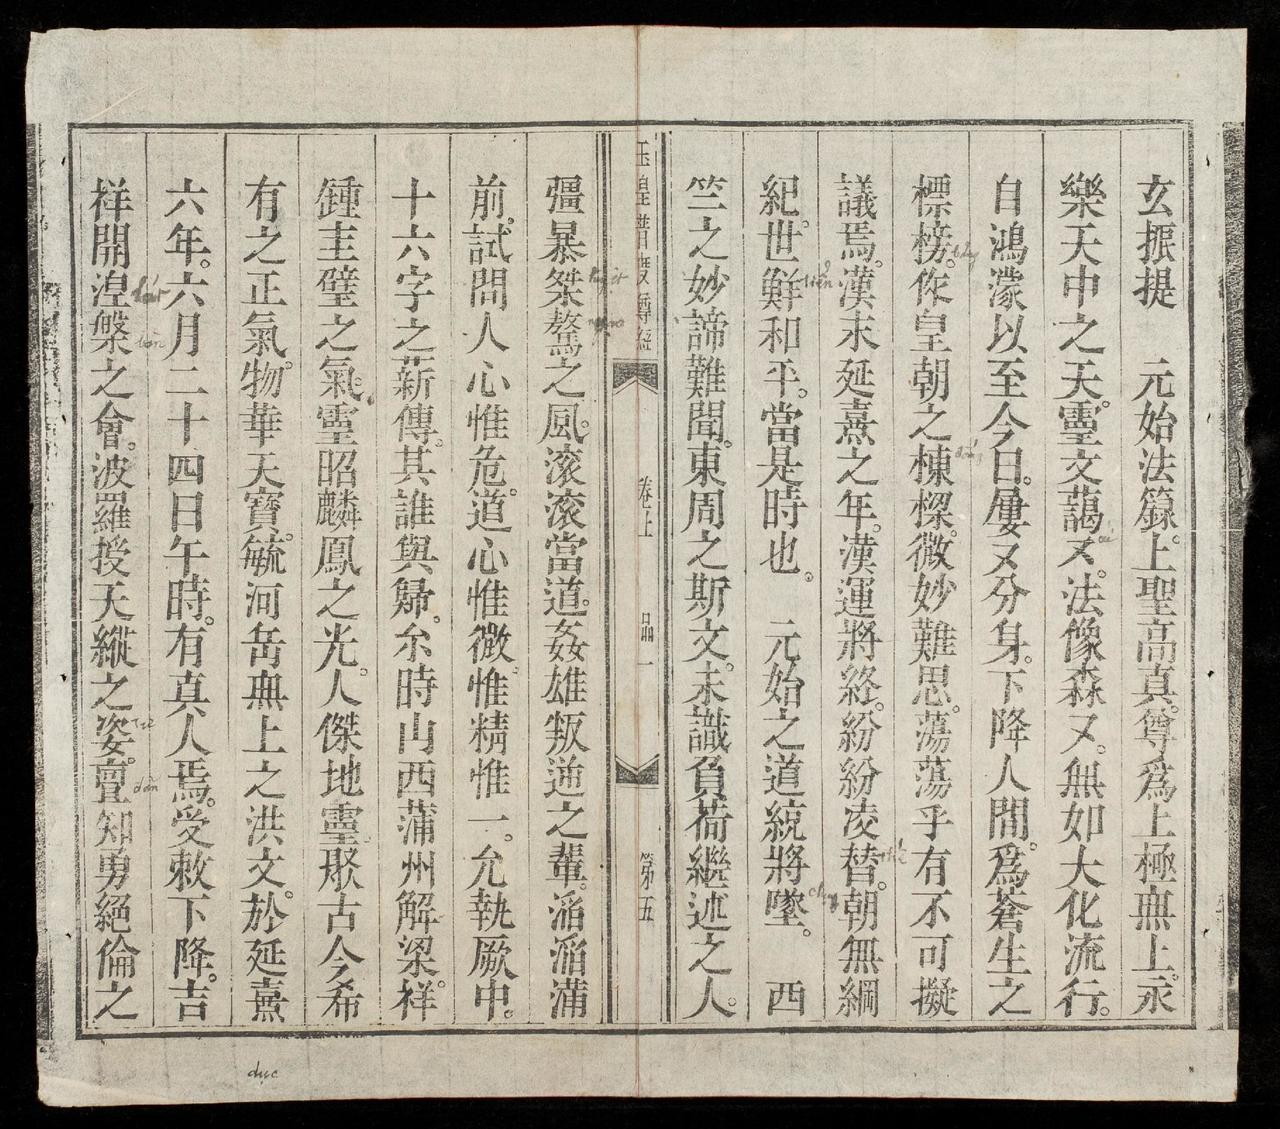 玄振提　元始法籙。上聖高真。尊爲上極無上。永
樂天中之天。靈文藹又。法像森又。無如大化流行。
自鴻濛以至今日。屢又分身。下降人間。爲蒼生之
標榜。作皇朝之棟樑。微妙難思。蕩蕩乎有不可擬
議焉。漢末延熹之年。漢運將終。紛紛凌替。朝無綱
紀。世鮮和平。當是時也。　元始之道統將墜。　西
竺之妙諦難聞。東周之斯文。未識負荷繼述之人。
玉皇普度尊經　卷上　品一　第五
彊暴桀驁之風。滚滚當道。姦雄叛逆之輩。滔滔蒲
前。試問人心惟危。道心惟微。惟精惟一。允執厥中。
十六字之薪傳。其誰與歸。尒時山西蒲州解梁。祥
鍾圭璧之氣。靈昭麟鳳之光。人傑地靈。聚古今希
有之正氣。物華天寶。毓河岳無上之洪文。於延熹
六年。六月二十四日午時。有真人焉。受敕下降。吉
祥開涅槃之會。波羅授天縱之姿。亶知勇絕倫之
dục